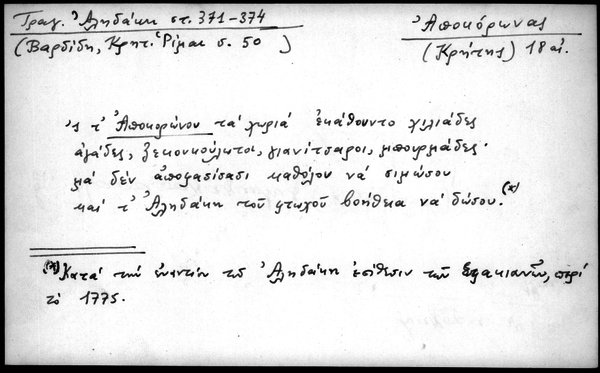 Τραγ. Ἀληδάκη στ. 371-374
(Βαρδίδη, Κρητ. Ρίμαι σ. 50 )
Ἀποκόρωνας
(Κρήτης) 18 αἰ.
'ς τ' Ἀποκορώνου τὰ χωριά ἐκάθουντο χιλιάδες
ἀγάδες, ξεκουκούλωτοι, γιανίτσαροι, μπουρμάδες·
μὰ δὲν ἀποφασίσασι καθόλου νὰ σιμώσου
καὶ τ' Ἀληδάκη τοῦ φτωχοῦ βοήθεια νὰ δώσου.(*)
(*) Κατὰ τὴν ἐναντίον τοῦ Ἀληδάκη ἐπίθεσιν τῶν Σφακιανῶν, περὶ
τὸ 1775.